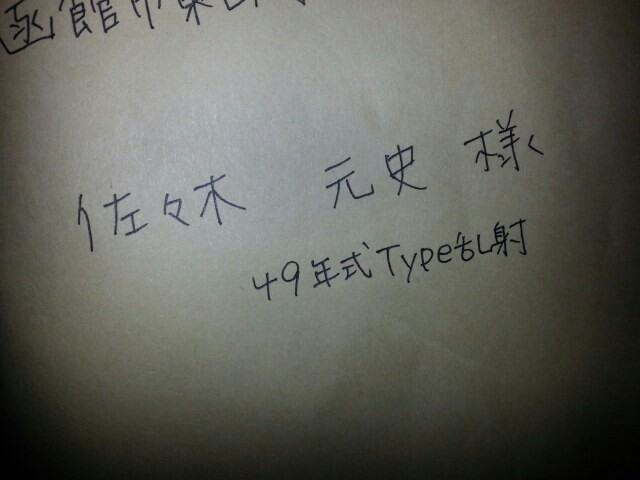 函館市東
佐々木 元史 様
49年式Type乱射